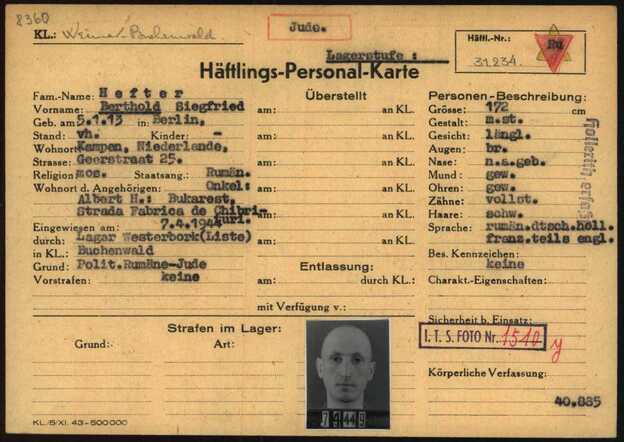 8360
KL.: Weimar-Buchenwald
Jude.
Häftl.-Nr.:
31234.
Ru
Lagerstufe :
Häftlings-Personal-Karte
Fam.-Name: Hefter
Vorname: Berthold Siegfried
Geb. am 5.1.13 in: Berlin,
Stand: vh. Kinder: -
Wohnort: Kampen, Niederlande,
Strasse: Geerstraat 25.
Religion: mos. Staatsang.: Rumän.
Wohnort d. Angehörigen: Onkel:
Albert H.: Bukarest,
Strada Fabrica de Chibri-
guri.
Eingewiesen am: 7.4.1944
durch: Lager Westerbork(Liste)
in KL.: Buchenwald
Grund: Polit.Rumäne-Jude
Vorstrafen: keine
Überstellt
am: an KL.
am: an KL.
am: an KL.
am: an KL.
am: an KL.
am: an KL.
Entlassung:
am: durch KL.:
mit Verfügung v.:
Personen-Beschreibung:
Grösse: 172 cm
Gestalt: m.st.
Gesicht: längl.
Augen: br.
Nase: n.a.geb.
Mund: gew.
Ohren: gew.
Zähne: vollst.
Haare: schw.
Sprache: rumän.dtsch.holl.
franz.teils engl.
Bes. Kennzeichen:
keine
Charakt.-Eigenschaften:
Sicherheit b. Einsatz:
I. T. S. FOTO Nr. 1510 y
Körperliche Verfassung:
40.885
Hollerith erfaßt
Strafen im Lager:
Grund: Art:
KL./5/XI. 43-500000